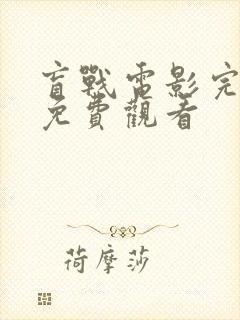 盲戰電影完
免費觀看
荷摩莎